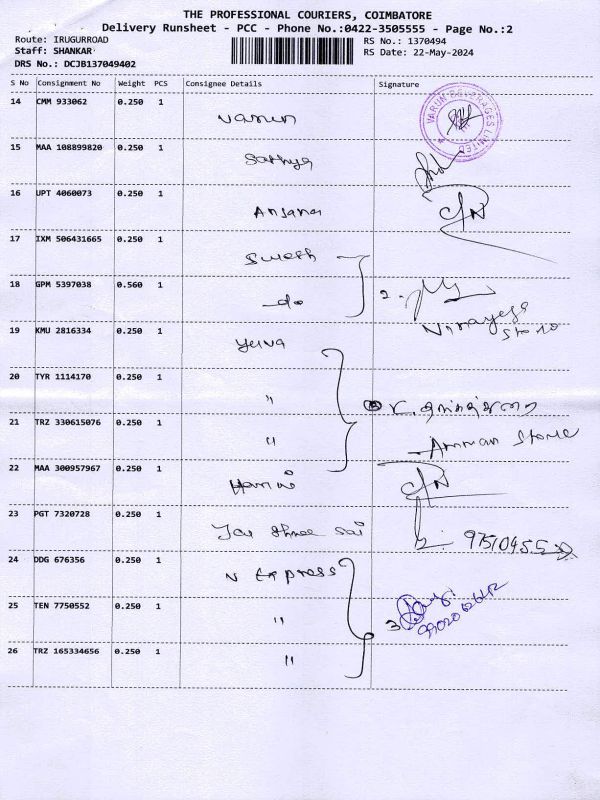 THE PROFESSIONAL COURIERS, COIMBATORE
Delivery Runsheet - PCC - Phone No.:0422-3505555 - Page No.:2
Route: IRUGURROAD
RS No.: 1370494
Staff: SHANKAR
RS Date: 22-May-2024
DRS No.: DCJB137049402
S No Consignment No Weight PCS Consignee Details Signature
14 CMM 933062 0.250 1 Varun
VARUN BEVERAGES LIMITED
15 MAA 108899820 0.250 1 Sathya
16 UPT 4060073 0.250 1 Anjana
17 IXM 506431665 0.250 1
18 GPM 5397038 0.560 1 -do 2.
Vinayega
Store
19 KMU 2816334 0.250 1 Yuva
20 TYR 1114170 0.250 1 "
21 TRZ 330615076 0.250 1 "
Amman Store
22 MAA 300957967 0.250 1 Harini
23 PGT 7320728 0.250 1 Jai Shree Sai
24 DDG 676356 0.250 1 N Express
25 TEN 7750552 0.250 1 " 3
26 TRZ 165334656 0.250 1 "